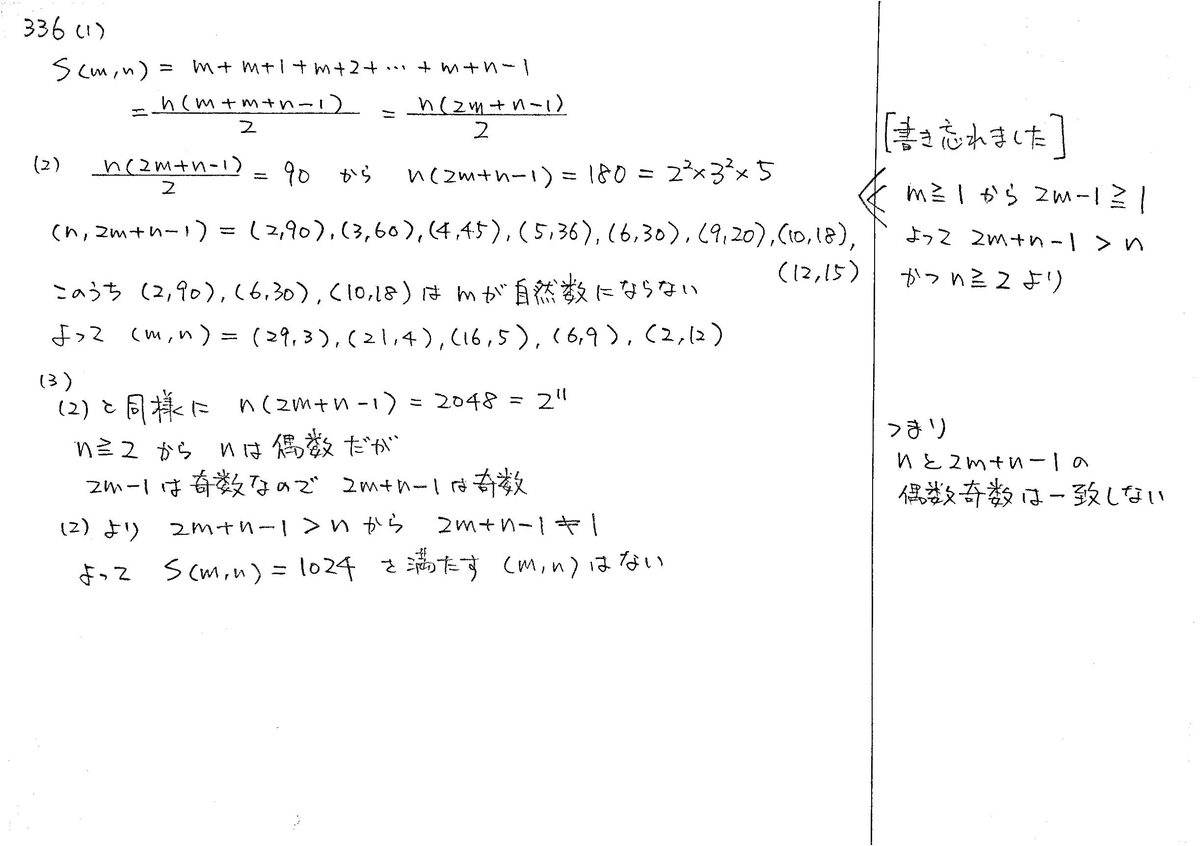 336 (1)
S(m,n) = m+m+1+m+2+…+m+n-1
= n(m+m+n-1)/2 = n(2m+n-1)/2
(2) n(2m+n-1)/2 = 90 から n(2m+n-1) = 180 = 2²×3²×5
(n, 2m+n-1) = (2,90), (3,60), (4,45), (5,36), (6,30), (9,20), (10,18),
(12,15)
このうち (2,90), (6,30), (10,18) は mが自然数にならない
よって (m,n) = (29,3), (21,4), (16,5), (6,9), (2,12)
(3)
(2)と同様に n(2m+n-1) = 2048 = 2¹¹
n≧2 から nは偶数だが
2m-1は奇数なので 2m+n-1は奇数
(2)より 2m+n-1 > n から 2m+n-1 ≠ 1
よって S(m,n) = 1024 を満たす (m,n) はない
[書き忘れました]
m≧1 から 2m-1≧1
よって 2m+n-1 > n
かつ n≧2 より
つまり
nと2m+n-1の
偶数奇数は一致しない